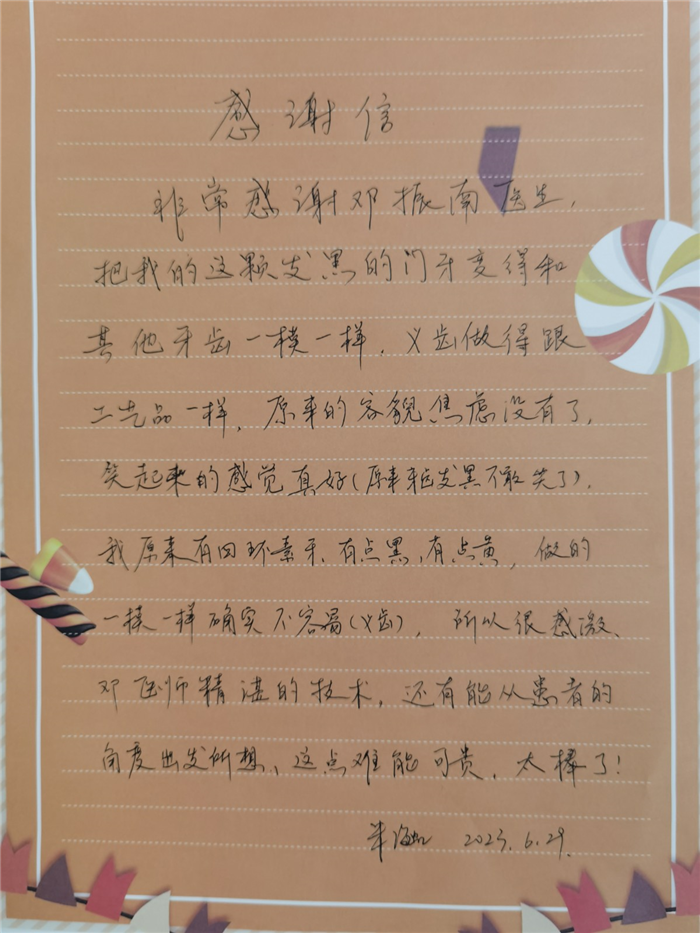 感谢信
非常感谢邓振南医生，
把我的这颗发黑的门牙变得和
其他牙齿一模一样，义齿做得跟
工艺品一样，原来的容貌焦虑没有了，
笑起来的感觉真好（原来牙齿发黑不敢笑了）.
我原来有四环素牙，有点黑，有点黄，做的
一模一样确实不容易（义齿），所以很感激、
邓医师精湛的技术，还有能从患者的
角度出发所想，这点难能可贵，太棒了！
2023.6.29.